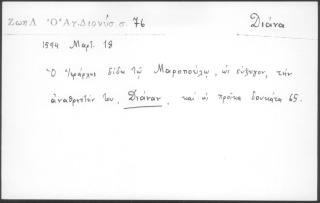 Ζώη Λ Ὁ Ἅγ. Διονύσ. σ. 76 Διάνα
1594 Μαρτ. 18
Ὁ δίδει τῷ Μαροπούλῳ, ὡς σύζυγον, τὴν
ἀναθρεπτήν του, Διάναν, καὶ ὡς προῖκα δουκάτα 65.